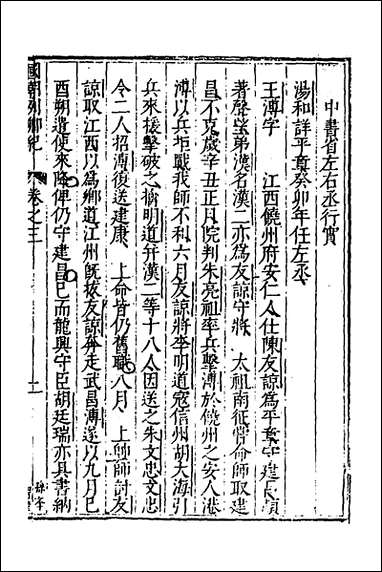 中書省左右丞行實
湯和詳平章癸卯年任左丞
王溥字 江西饒州府安仁人仕陳友諒為平章守建昌頗
著聲望弟漢名漢二亦為友諒守將 太祖南征嘗命師取建
昌不克歲辛丑正月院判朱亮祖率兵擊溥於饒州之安人港
溥以兵拒戰我師不利六月友諒將李明道寇信州胡大海引
兵來援擊破之擒明道并漢二等十八人因送之朱文忠文忠
令二人招溥復送建康 上命皆仍舊職八月 上帥師討友
諒取江西以為鄉道江州既拔友諒奔走武昌溥遂以九月己
酉朔遣使來降俾仍守建昌已而龍興守臣胡廷瑞亦具書納
國朝列卿紀 卷之三